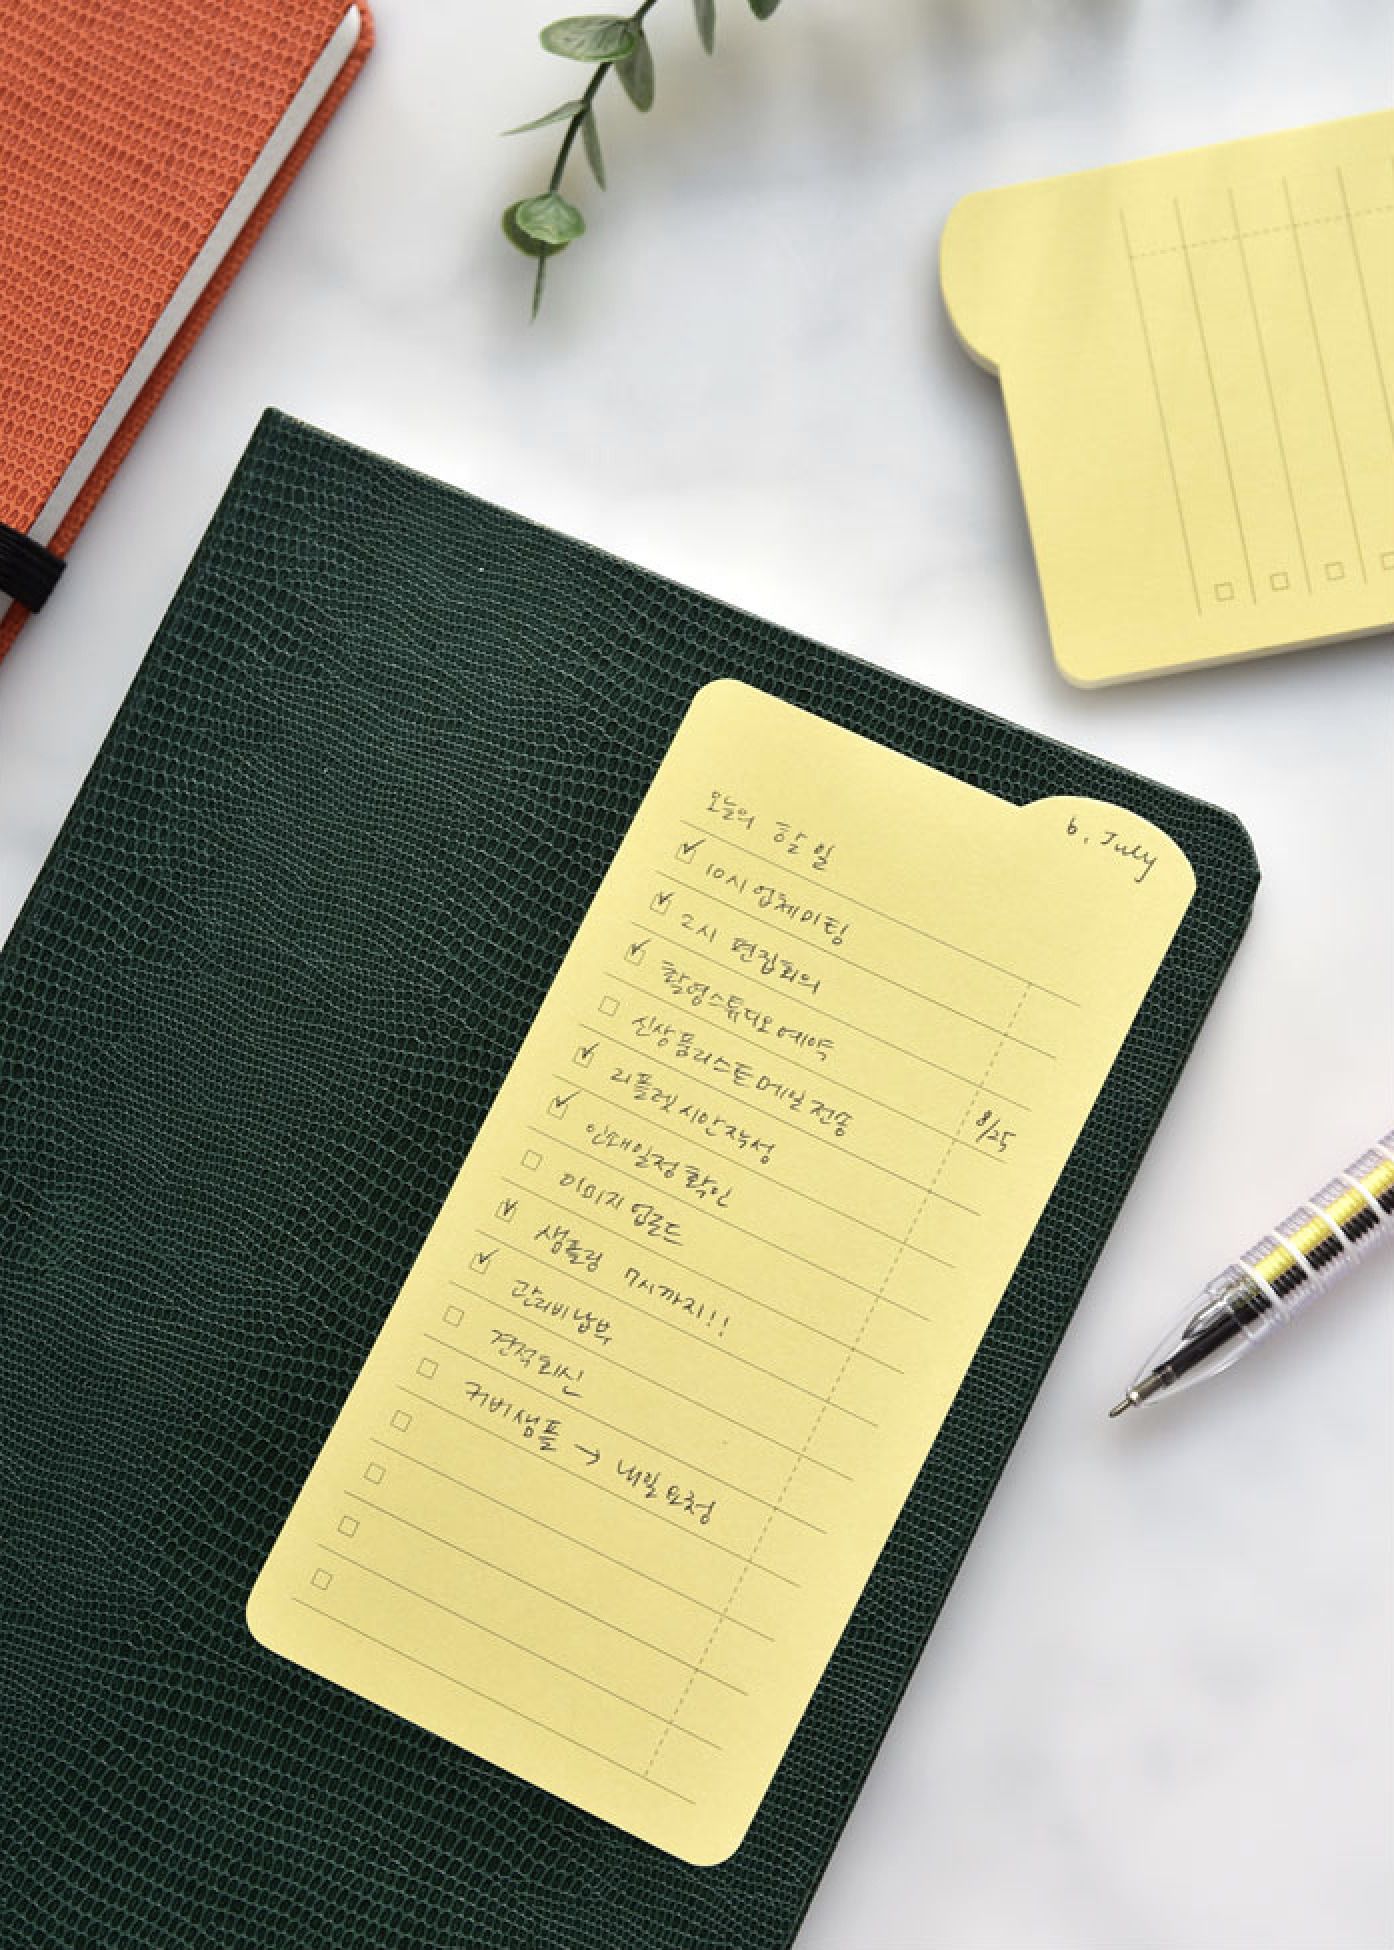 6. July
오늘의 할 일
10시 업체미팅
2시 편집회의
촬영스튜디오 예약
신상품리스트 메일 전송 8/25
리플렛 시안작성
인쇄일정 확인
이미지 업로드
샘플링 7시까지!!
관리비 납부
견적회신
커버샘플 → 내일 요청